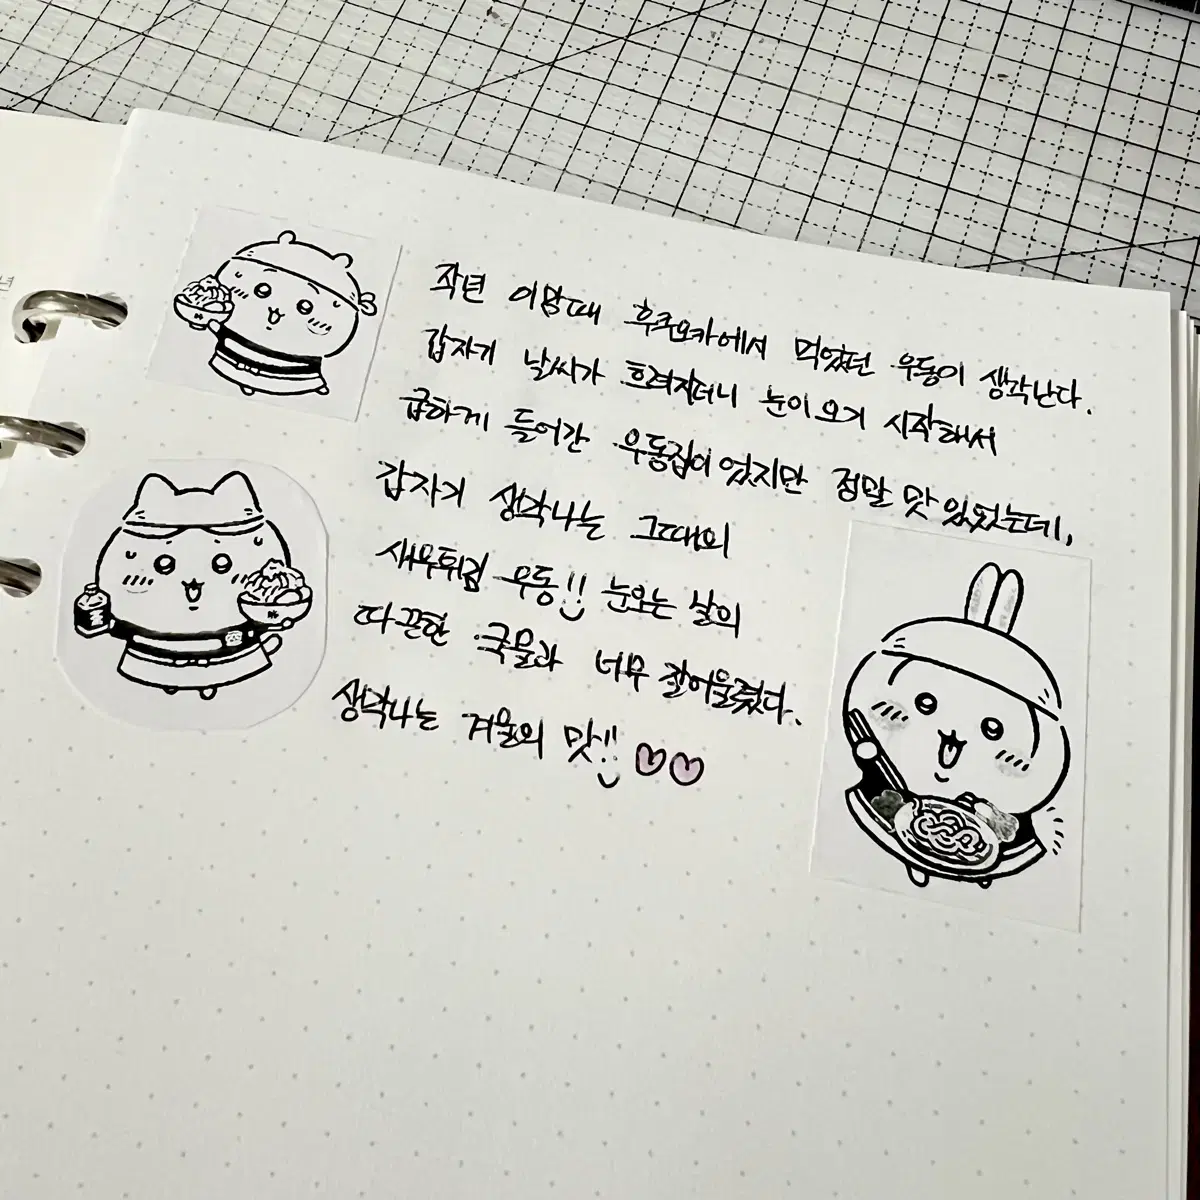 작년 이맘때 후쿠오카에서 먹었던 우동이 생각난다.
갑자기 날씨가 흐려지더니 눈이 오기 시작해서
급하게 들어간 우동집이었지만 정말 맛있었는데,
갑자기 생각나는 그때의
새우튀김 우동!! 눈오는 날의
따끈한 국물과 너무 잘어울렸다.
생각나는 겨울의 맛!! ♡♡